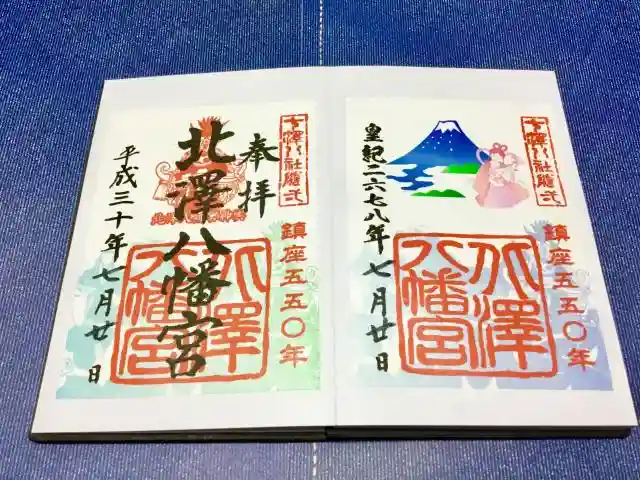 皇紀二六七八年七月廿日
鎮座五五〇年
北澤八幡宮
奉拝
北澤八幡宮
平成三十年七月廿日
鎮座五五〇年
北澤八幡宮